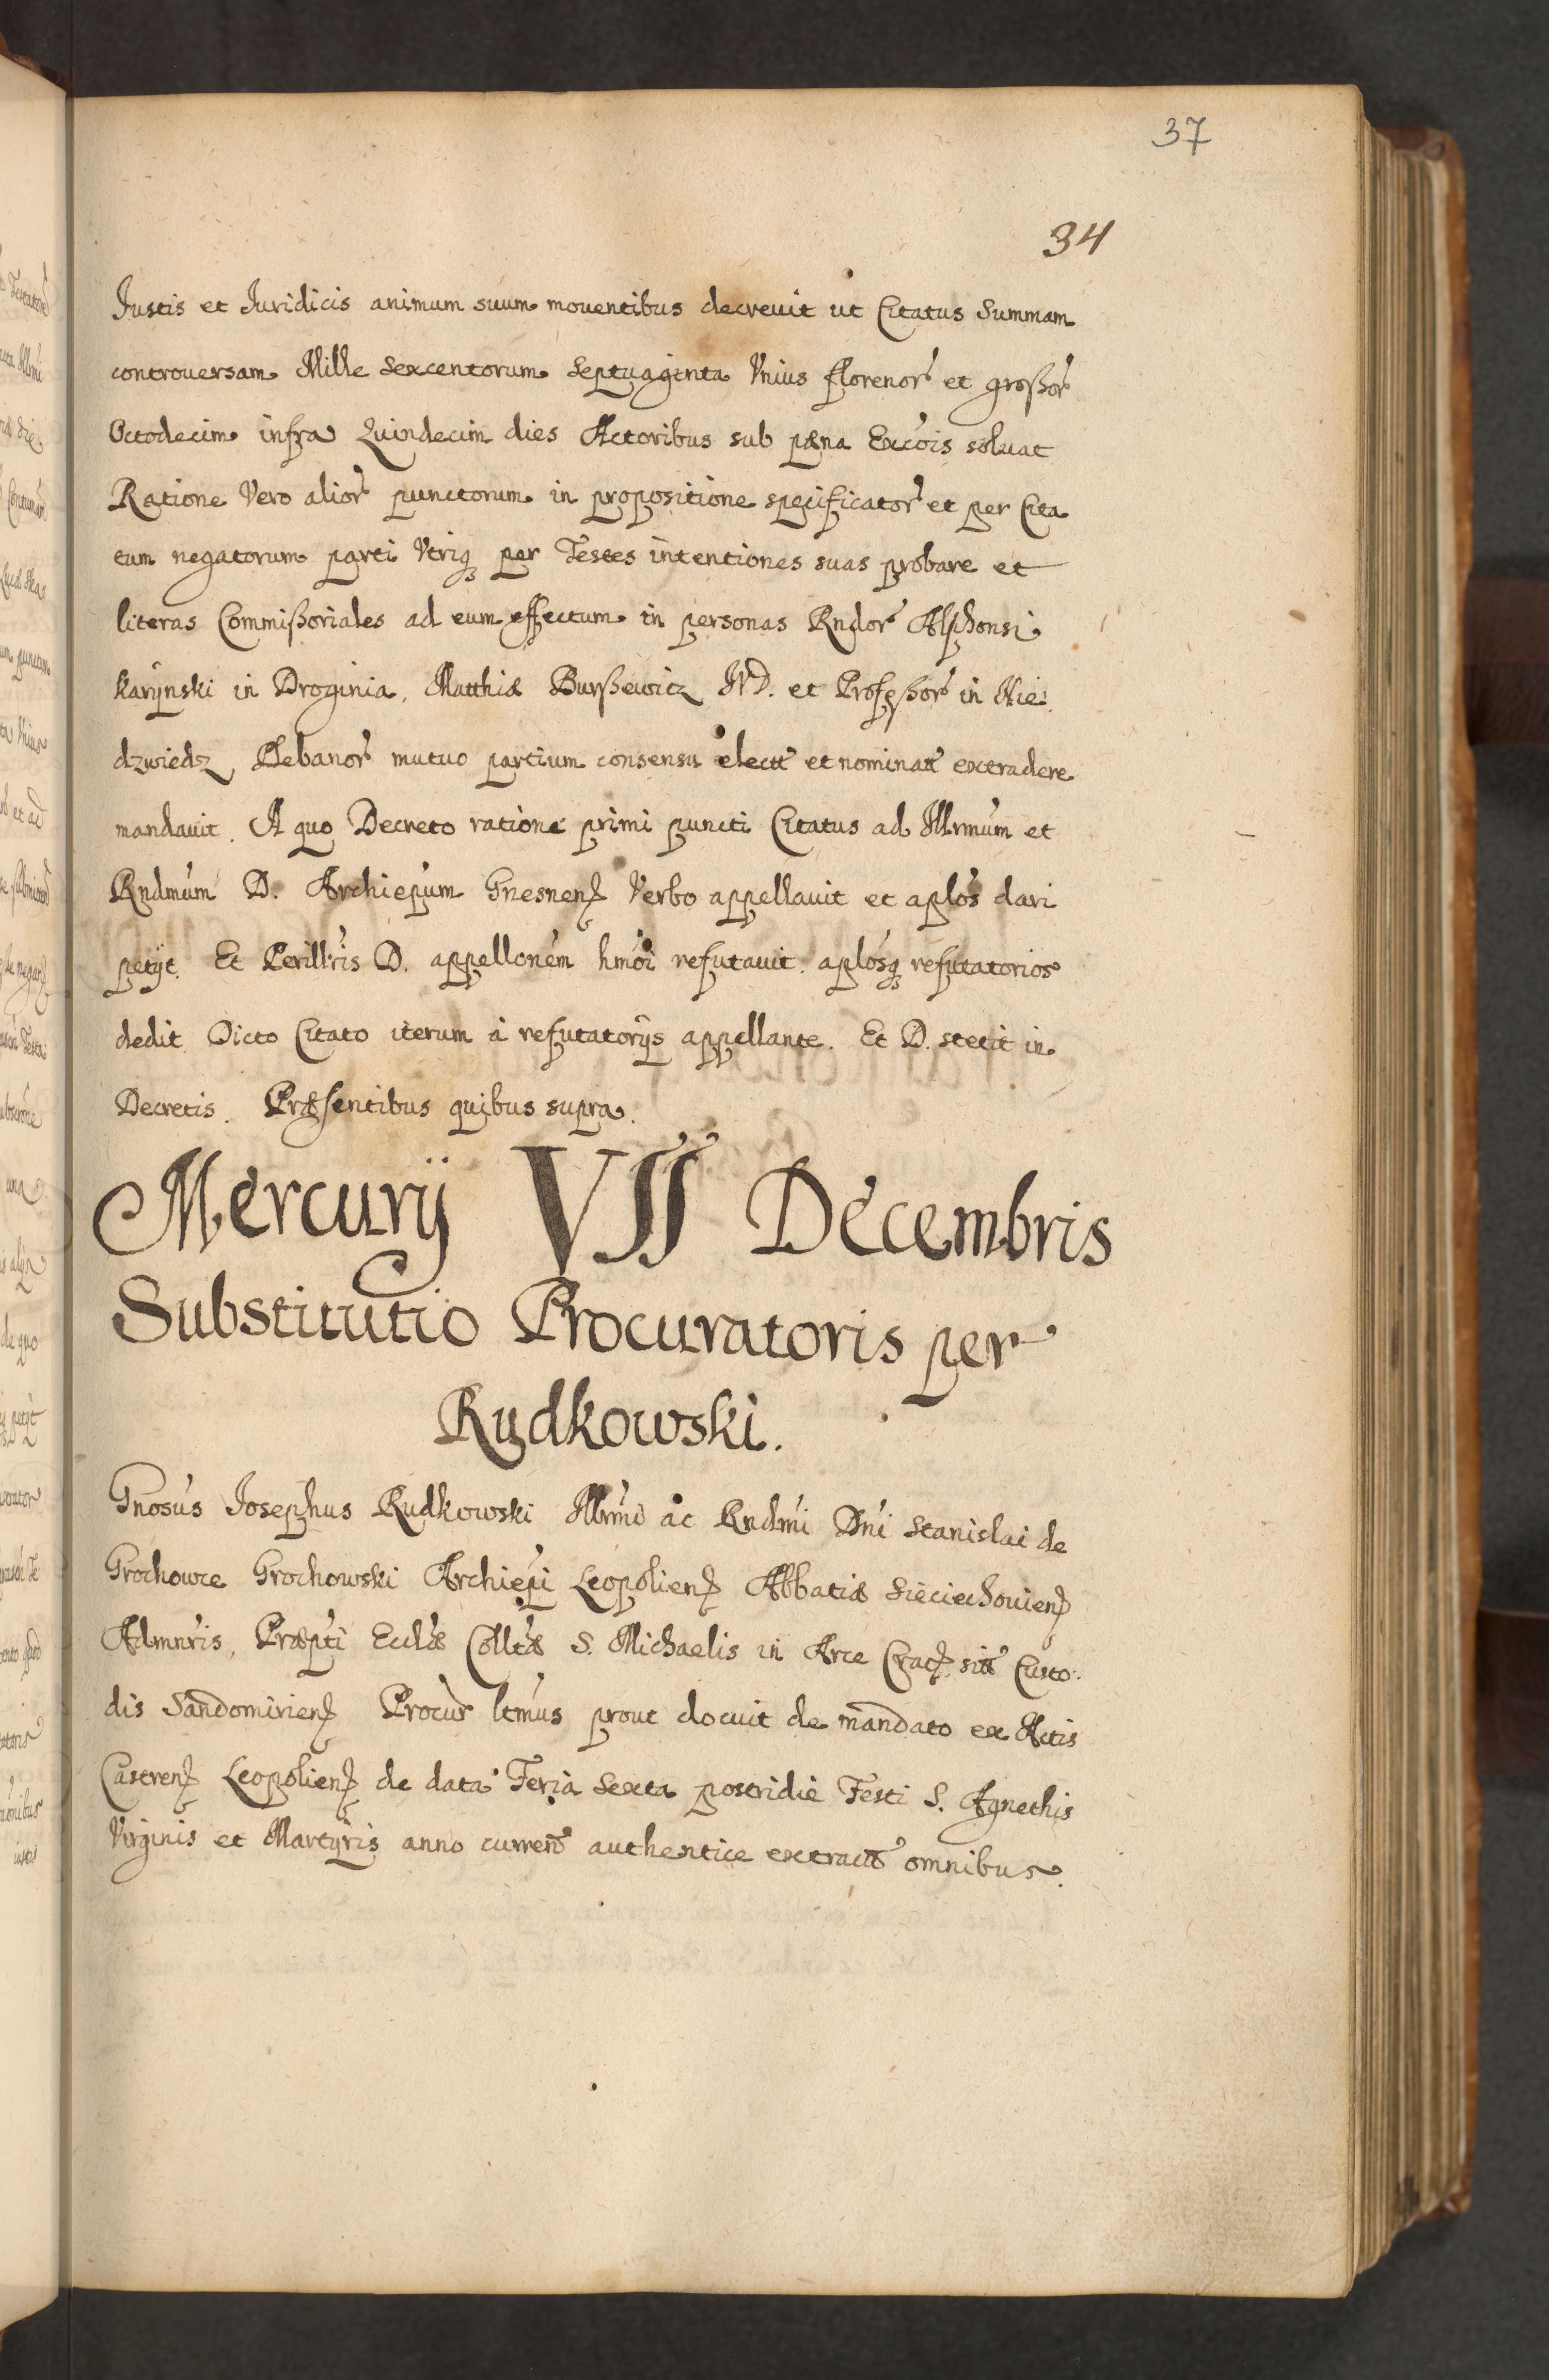 37
34
Justis et Juridicis animum suum mouentibus decreuit ut Citatus Summam
controuersam Mille Sexcentorum Septuaginta Vnius florenor et großor
Octodecim infra Quindecim dies Actoribus sub pæna Excois soluat
Ratione Vero alior punctorum in propositione specificator et per Cita
tum negatorum parti Vtriq per Testes intentiones suas probare et
literas Commißoriales ad eum effectum in personas Rndor Alphonsi
Karynski in Droginia, Matthiæ Burßewicz IVD. et Profeßor in Nie
dzwiedz Plebanor mutuo partium consensu elect et nominat extradere
mandauit. A quo Decreto ratione primi puncti Citatus ad Illrmum et
Rndmum D. Archiepum Gnesnen Verbo appellauit et aplos dari
petijt. Et Perillris D. appellonem hmoi refutauit. aplosq refutatorios
dedit Dicto Citato iterum à refutatorijs appellante. Et D. stetit in
Decretis. Præsentibus quibus supra.
Mercurij VII Decembris
Substitutio Procuratoris per
Rudkowski.
Gnosus Josephus Rudkowski Illrmi ac Rndmi Dni Stanislai de
Grochowce Grochowski Archiepi Leopolien Abbatiæ Sieciechouien
Admnris, Præpti Ecclæ Colltæ S. Michaelis in Arce Crac sit Custo:
dis Sandomirien Procur ltmus prout docuit de mandato ex Actis
Castren Leopolien de data Feria Sexta postridie Festi S. Agnethis
Virginis et Martyris anno curren authentice extract omnibus.